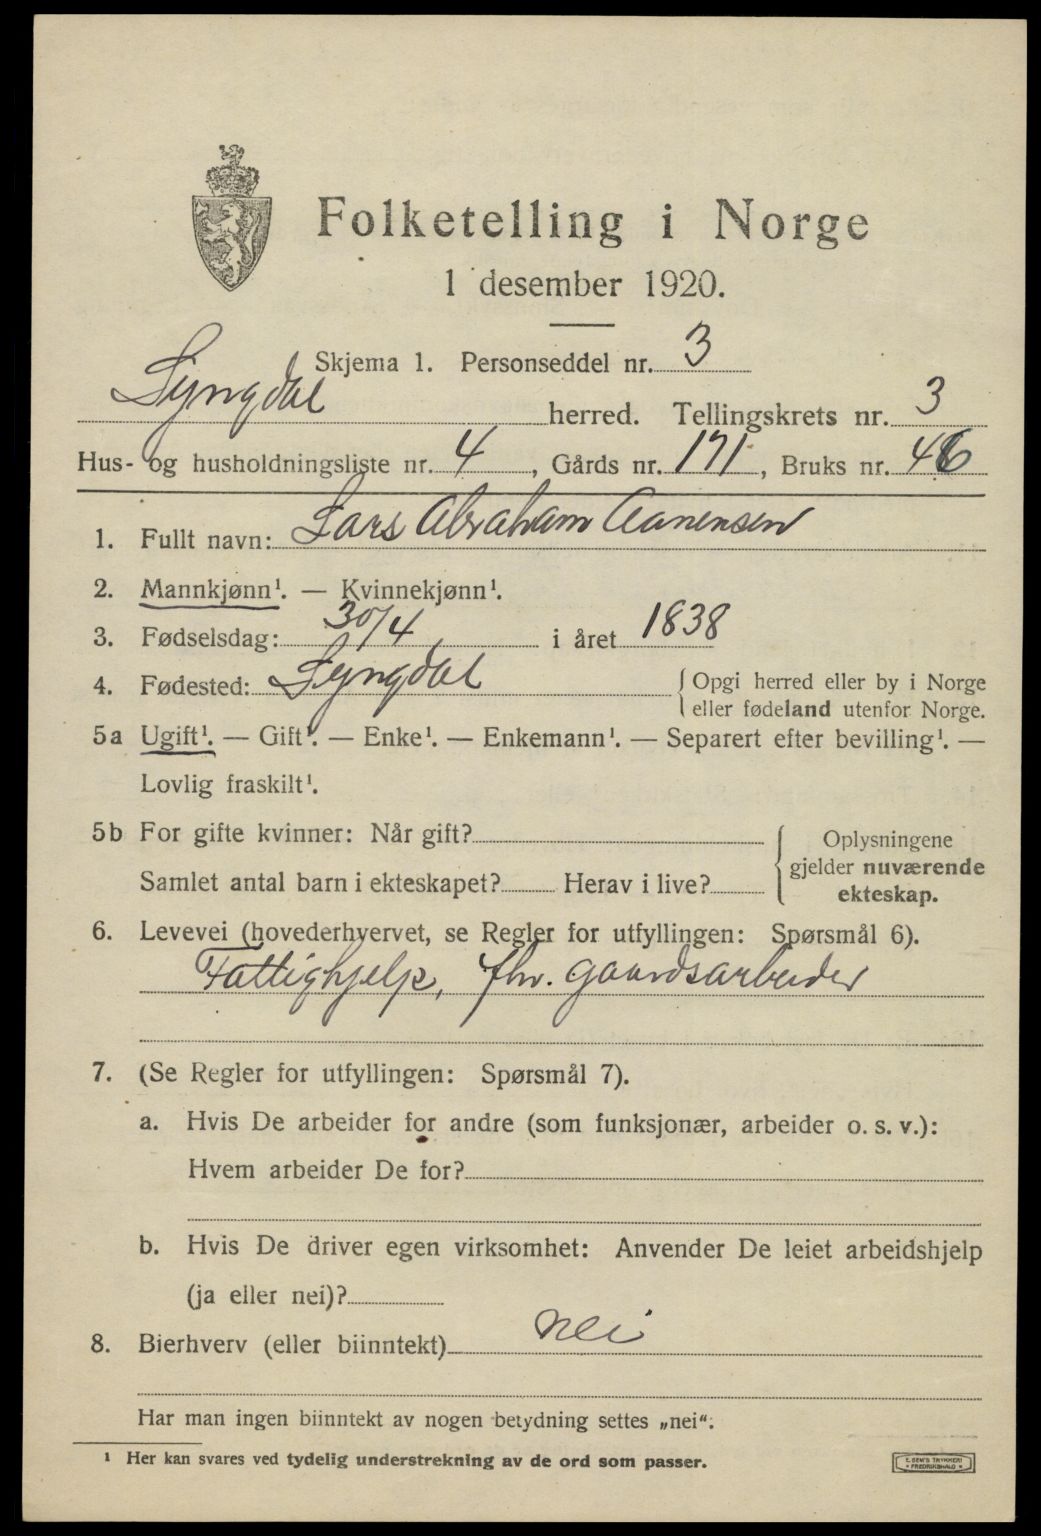 Folketelling i Norge
1 desember 1920.
Skjema 1. Personseddel nr. 3
Lyngdal herred. Tellingskrets nr. 3
Hus- og husholdningsliste nr. 4, Gårds nr. 171, Bruks nr. 46
1. Fullt navn: Lars Abraham Aanensen
2. Mannkjønn¹. — Kvinnekjønn¹.
3. Fødselsdag: 30/4 i året 1838
4. Fødested: Lyngdal {Opgi herred eller by i Norge
eller fødeland utenfor Norge.
5a Ugift¹. — Gift¹. — Enke¹. — Enkemann¹. — Separert efter bevilling¹. —
Lovlig fraskilt¹.
5b For gifte kvinner: Når gift?
Samlet antal barn i ekteskapet? Herav i live?
{Oplysningene
gjelder nuværende
ekteskap.
6. Levevei (hovederhvervet, se Regler for utfyllingen: Spørsmål 6).
Fattighjelp, fhv. gaardsarbeider
7. (Se Regler for utfyllingen: Spørsmål 7).
a. Hvis De arbeider for andre (som funksjonær, arbeider o. s. v.):
Hvem arbeider De for?
b. Hvis De driver egen virksomhet: Anvender De leiet arbeidshjelp
(ja eller nei)?
8. Bierhverv (eller biinntekt) nei
Har man ingen biinntekt av nogen betydning settes „nei“.
¹ Her kan svares ved tydelig understrekning av de ord som passer.
E. SEM'S TRYKKERI
FREDRIKSHALD